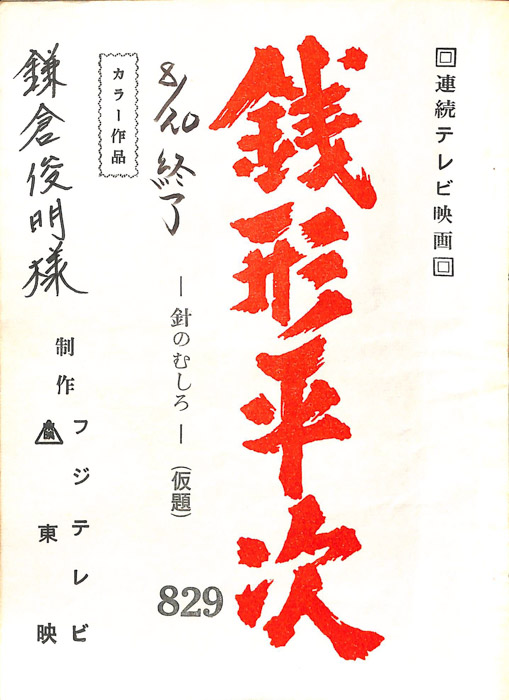 回連続テレビ映画回
銭形平次
―針のむしろ―(仮題)
829
8/20終了
カラー作品
鎌倉俊明様
制作
フジテレビ
東映